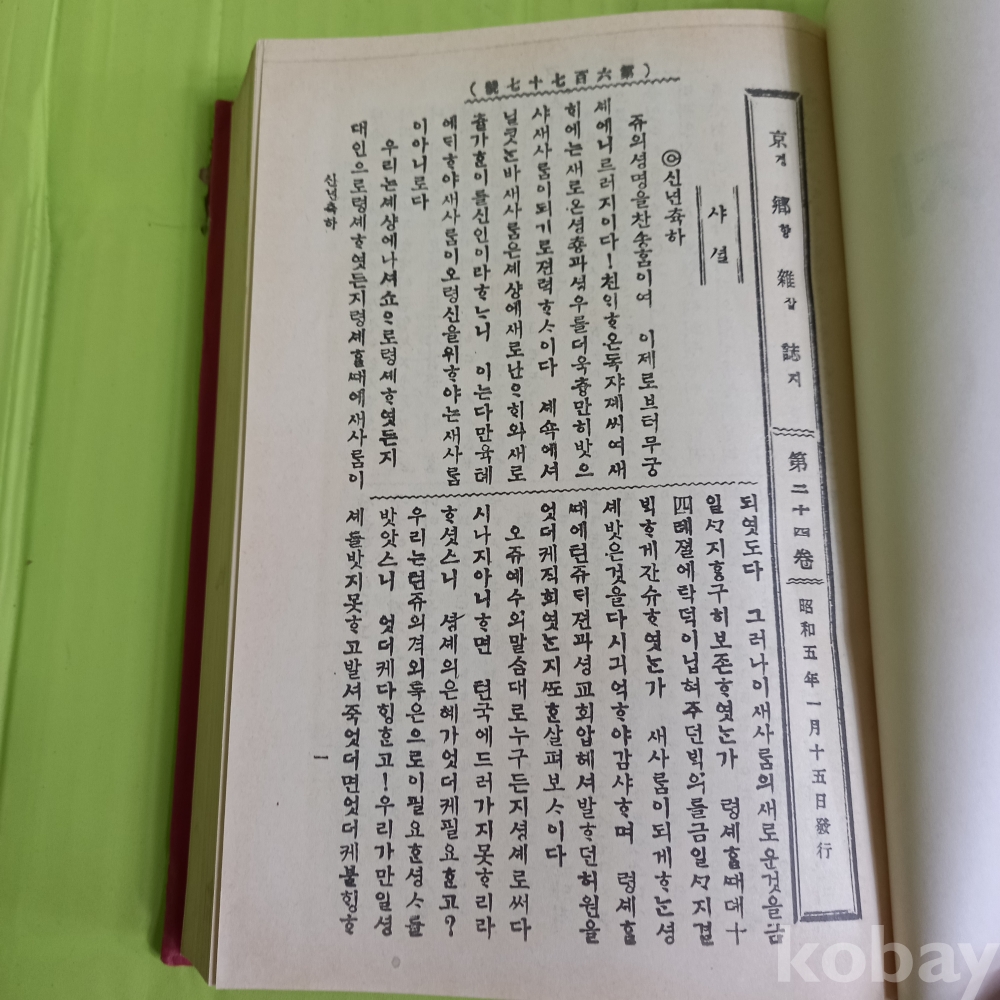 京경鄕향雜잡誌지 第二十四卷 昭和五年一月十五日發行
(第六百七十七號)
샤셜
◎신년츅하
쥬의셩명을찬숑홈이여 이제로브터무궁
셰에니르러지이다!친ᄋᆡᄒᆞ온독쟈졔씨여새
ᄒᆡ에는새로온셩춍과셩우를더욱츙만히밧으
샤새사ᄅᆞᆷ이되기로젼력ᄒᆞᄉᆞ이다 셰쇽에셔
닐ᄏᆞᆺᄂᆞᆫ바새사ᄅᆞᆷ은셰샹에새로난ᄋᆞᄒᆡ와새로
츌가ᄒᆞᆫ이를신인이라ᄒᆞᄂᆞ니 이는다만육톄
에ᄃᆡᄒᆞ야새사ᄅᆞᆷ이오령신을위ᄒᆞ야는새사ᄅᆞᆷ
이아니로다
우리는셰샹에나셔쇼ᄋᆞ로령셰ᄒᆞ엿든지
대인으로령셰ᄒᆞ엿든지령셰ᄒᆞᆯᄯᅢ에새사ᄅᆞᆷ이
되엿도다 그러나이새사ᄅᆞᆷ의새로운것을금
일ᄭᆞ지ᄒᆞᆼ구히보존ᄒᆞ엿ᄂᆞᆫ가 령셰ᄒᆞᆯᄯᅢ대十
四톄졀에락덕이닙혀주던ᄇᆡᆨ의를금일ᄭᆞ지결
ᄇᆡᆨᄒᆞ게잔슈ᄒᆞ엿ᄂᆞᆫ가 새사ᄅᆞᆷ이되게ᄒᆞᄂᆞᆫ셩
셰밧은것을다시긔억ᄒᆞ야감샤ᄒᆞ며 령셰ᄒᆞᆯ
ᄯᅢ에텬쥬ᄃᆡ젼과셩교회압헤셔발ᄒᆞ던허원을
엇더케직희엿ᄂᆞᆫ지ᄯᅩᄒᆞᆫ살펴보ᄉᆞ이다
오쥬예수의말ᄉᆞᆷ대로누구든지셩셰로써다
시나지아니ᄒᆞ면 텬국에드러가지못ᄒᆞ리라
ᄒᆞ셧스니 셩셰의은혜가엇더케필요ᄒᆞᆫ고?
우리는텬쥬의격외특은으로이필요ᄒᆞᆫ셩ᄉᆞ를
밧앗스니 엇더케다ᄒᆡᆼᄒᆞᆫ고!우리가만일셩
셰를밧지못ᄒᆞ고발셔죽엇더면엇더케불ᄒᆡᆼᄒᆞ
신년츅하
一
kobay